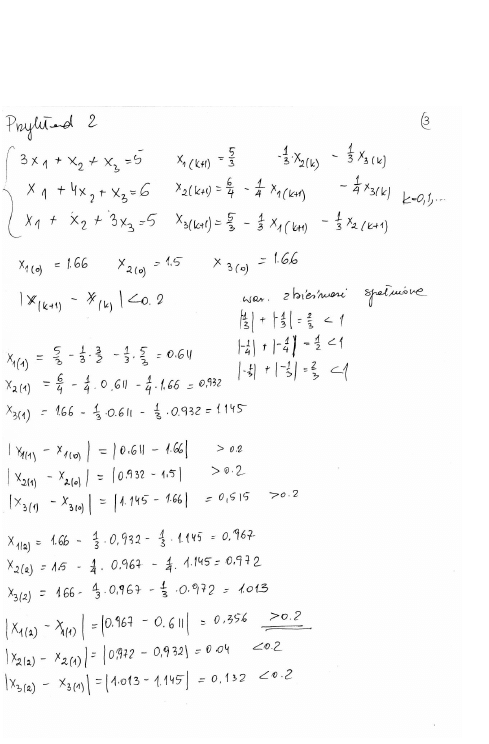 Przykład 2 (3
3x1 + x2 + x3 = 5 x1(k+1) = 5/3 -1/3·x2(k) - 1/3 x3(k)
x1 + 4x2 + x3 = 6 x2(k+1) = 6/4 - 1/4 x1(k+1) - 1/4 x3(k) k=0,1,...
x1 + x2 + 3x3 = 5 x3(k+1) = 5/3 - 1/3 x1(k+1) - 1/3 x2(k+1)
x1(0) = 1.66 x2(0) = 1.5 x3(0) = 1.66
|x(k+1) - x(k)| < 0.2 war. zbieżności spełnione
|1/3| + |-1/3| = 2/3 < 1
|-1/4| + |-1/4| = 1/2 < 1
|-1/3| + |-1/3| = 2/3 < 1
x1(1) = 5/3 - 1/3·3/2 - 1/3·5/3 = 0.611
x2(1) = 6/4 - 1/4·0,611 - 1/4·1.66 = 0,932
x3(1) = 1.66 - 1/3·0.611 - 1/3·0.932 = 1.145
|x1(1) - x1(0)| = |0.611 - 1.66| > 0.2
|x2(1) - x2(0)| = |0.932 - 1.5| > 0.2
|x3(1) - x3(0)| = |1.145 - 1.66| = 0,515 > 0.2
x1(2) = 1.66 - 1/3·0,932 - 1/3·1.145 = 0,967
x2(2) = 1.5 - 1/4·0.967 - 1/4·1.145 = 0,972
x3(2) = 1.66 - 1/3·0.967 - 1/3·0.972 = 1.013
|x1(2) - x1(1)| = |0.967 - 0.611| = 0,356 > 0.2
|x2(2) - x2(1)| = |0,972 - 0,932| = 0.04 < 0.2
|x3(2) - x3(1)| = |1.013 - 1.145| = 0,132 < 0.2